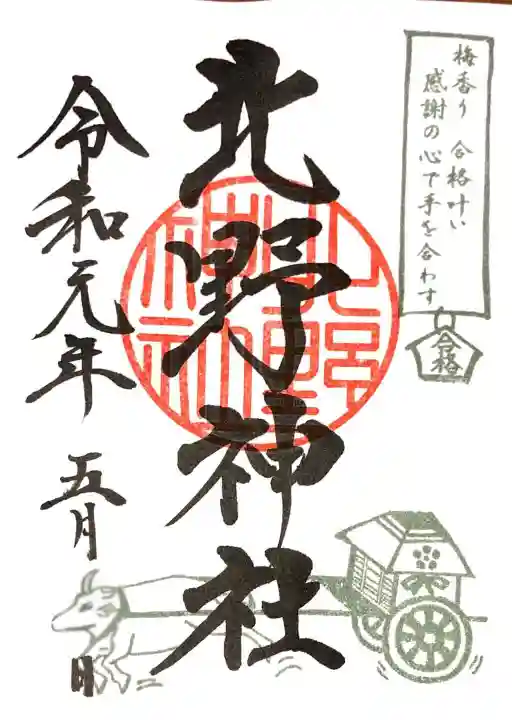 梅香り 合格叶い
感謝の心で手を合わす
合格
北野神社
北野神社
令和元年 五月 日